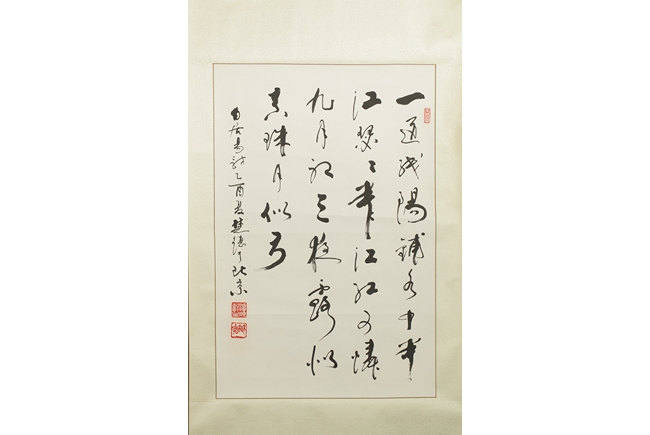 一道残陽鋪水中半
江瑟〻半江红可憐
九月初三夜露似
真珠月似弓
白居易诗乙酉夏德于北京